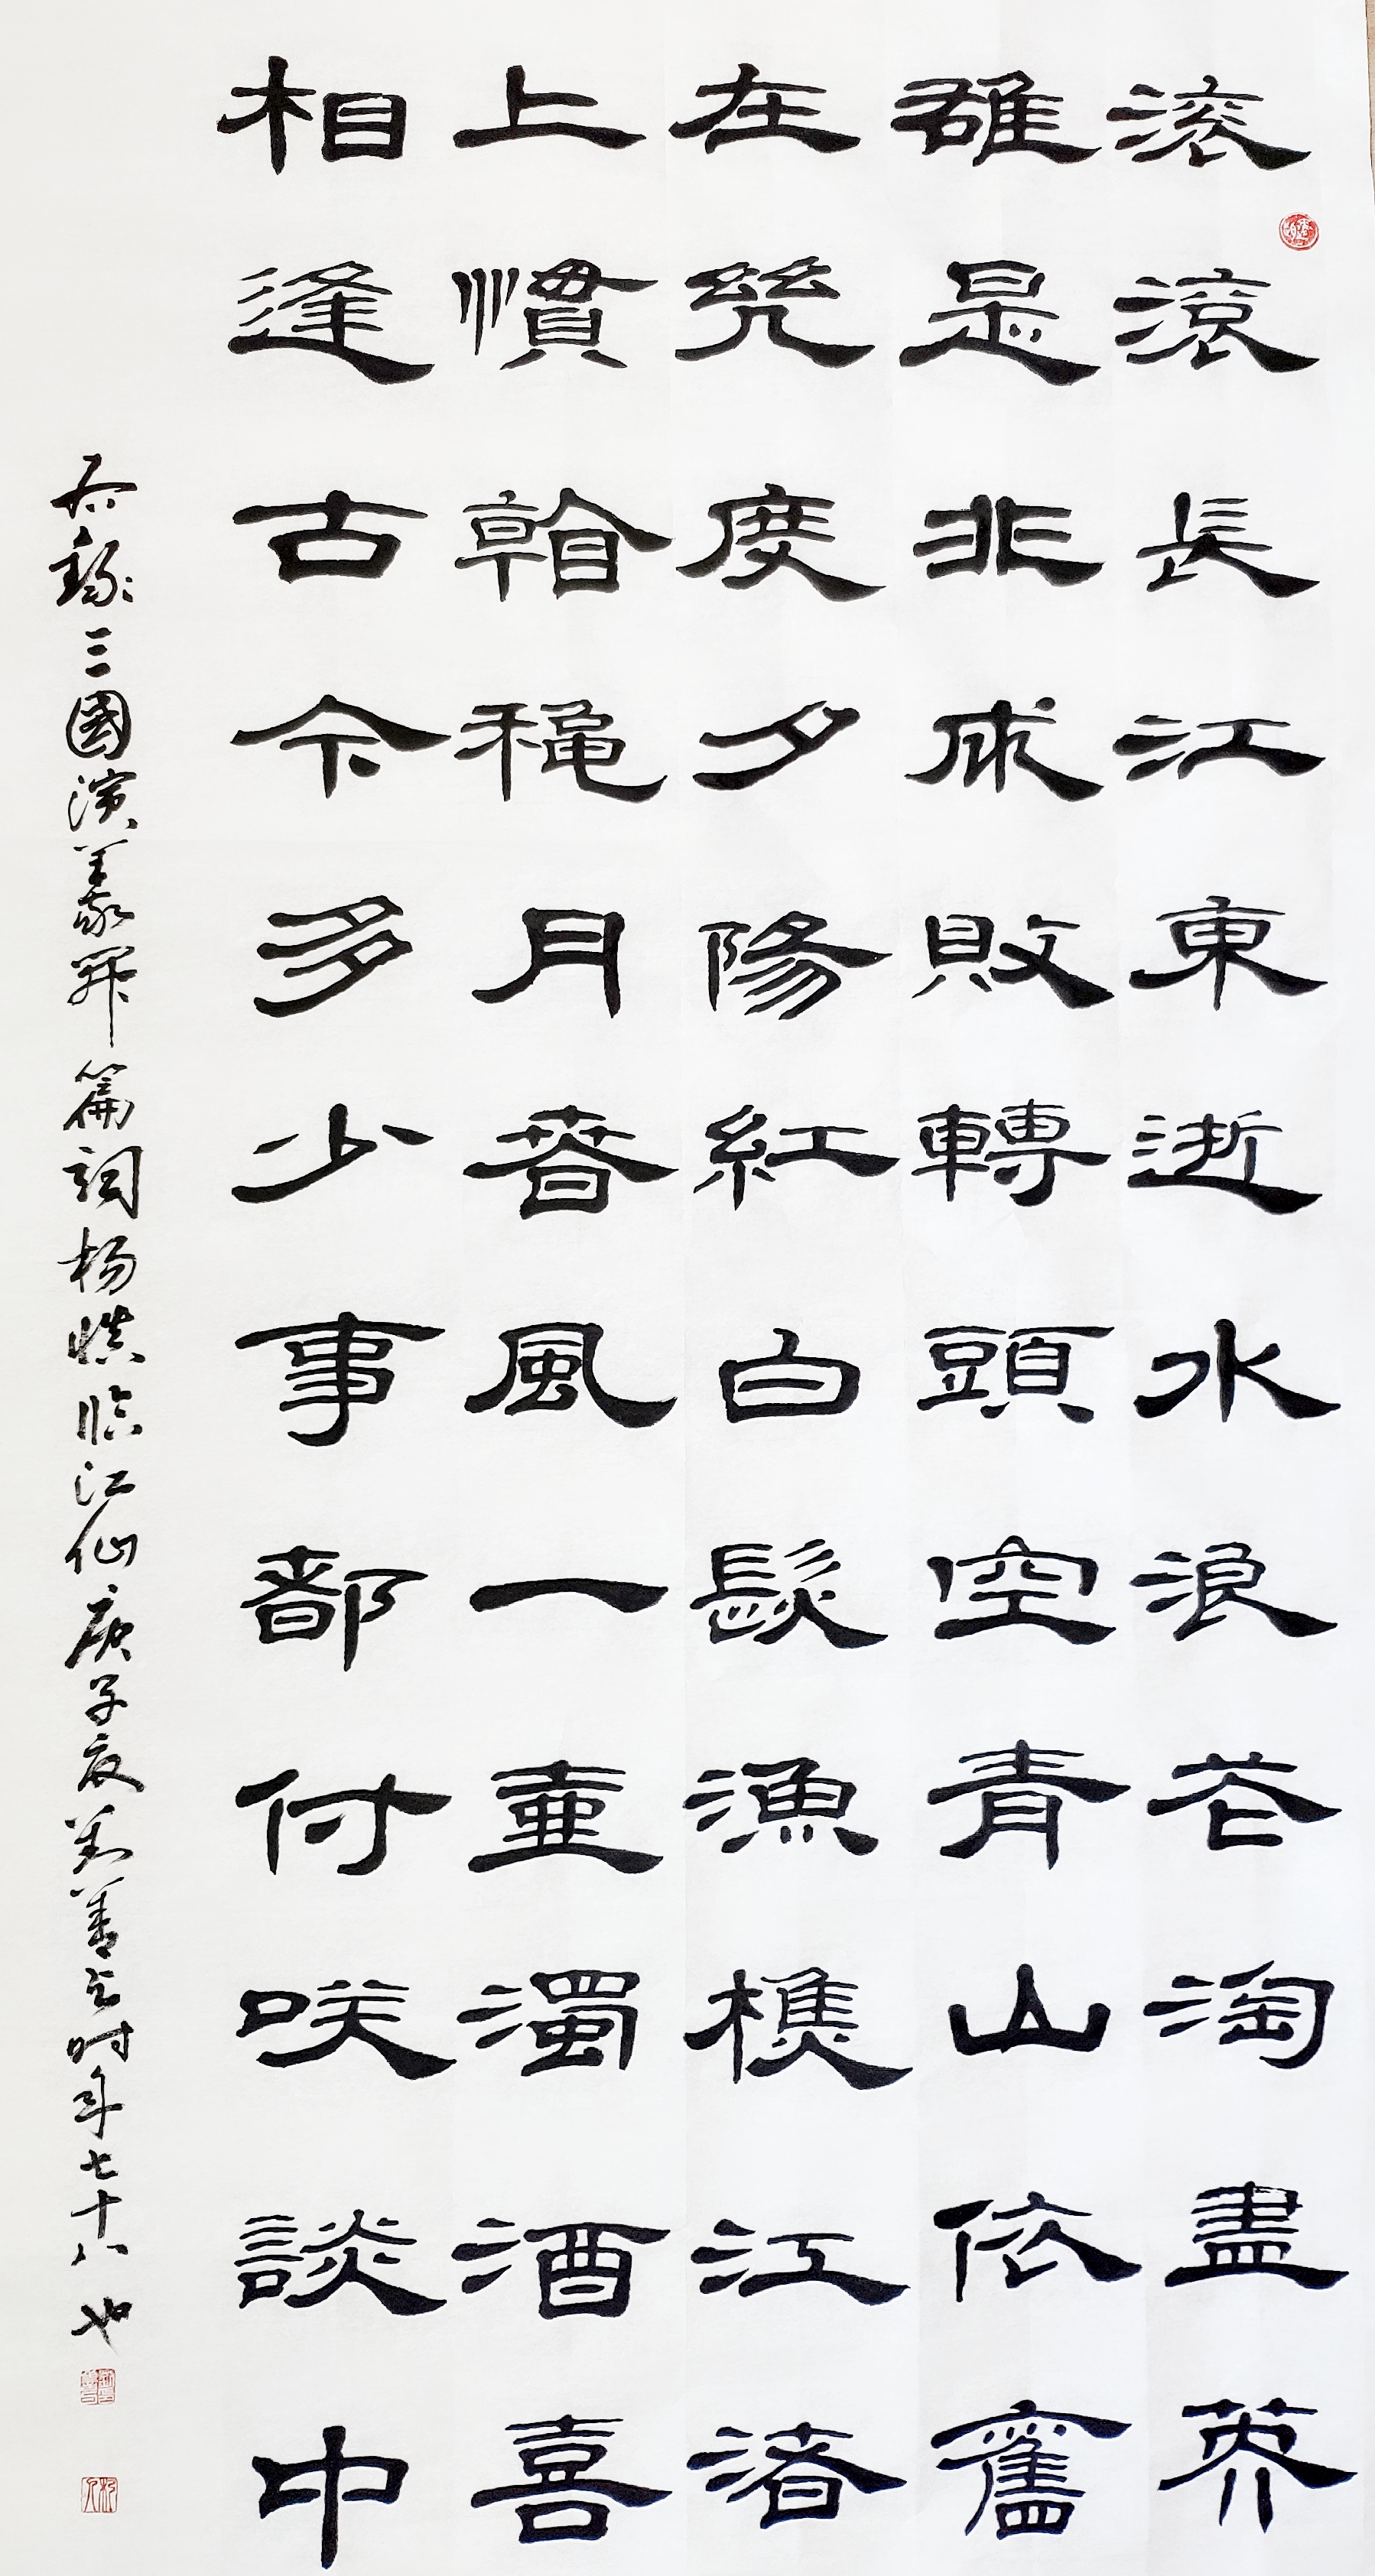 滾滾長江東逝水浪花淘盡英
雄是非成敗轉頭空青山依舊
在幾度夕陽紅白髮漁樵江渚
上慣看穐月春風一壺濁酒喜
相逢古今多少事都付咲談中
右錄三國演義開篇詞杨慎临江仙庚子夏刘善时年七十八也